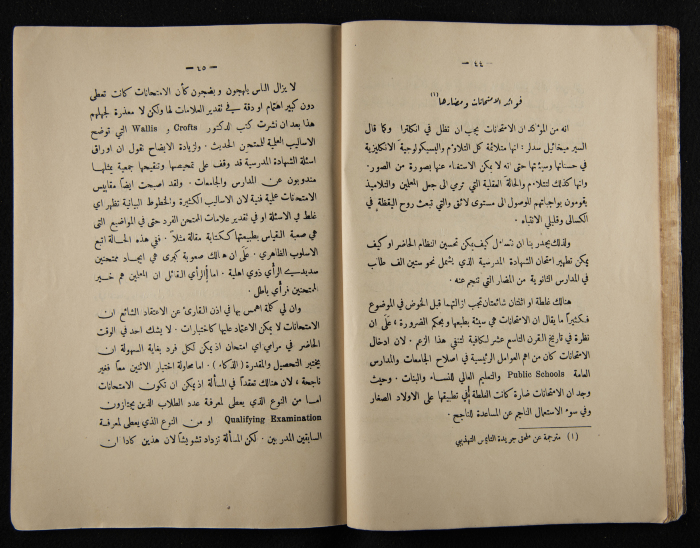 — ٤٤ —
فوائد الامتحانات ومضارها (١)
انه من المؤكد ان الامتحانات يجب ان تظل في انكلترا وكما قال
السير ميخائيل سدلر : انها متلائمة كل التلاؤم والبسيكولوجية الانكليزية
في حسناتها وسيئاتها حتى انه لا يمكن الاستغناء عنها بصورة من الصور .
وانها كذلك لتتلاءم والحالة العقلية التي ترمي الى جعل المعلمين والتلاميذ
يقومون بواجباتهم للوصول الى مستوى لائق والتي تبعث روح اليقظة في
الكسالى وقليلي الانتباه .
ولذلك يجدر بنا ان نتساءل كيف يمكن تحسين النظام الحاضر او كيف
يمكن تطهير امتحان الشهادة المدرسية الذي يشمل نحو ستين الف طالب
في المدارس الثانوية من المضار التي تنجم عنه .
هنالك غلطة او اثنتان شائعتان تجب ازالتهما قبل الخوض في الموضوع
فكثيراً ما يقال ان الامتحانات هي سيئة بطبعها وبحكم الضرورة ؛ على ان
نظرة في تاريخ القرن التاسع عشر لكافية لتنفي هذا الزعم . لان ادخال
الامتحانات كان من اهم العوامل الرئيسية في اصلاح الجامعات والمدارس
العامة Public Schools والتعليم العالي للنساء والبنات . وحيث
وجد ان الامتحانات ضارة كانت الغلطة في تطبيقها على الاولاد الصغار
وفي سوء الاستعمال الناجم عن المساعدة للناجح .
(١) مترجمة عن ملحق جريدة التايمس التهذيبي
— ٤٥ —
لا يزال الناس يلهجون ويضجون كأن الامتحانات كانت تعطى
دون كبير اهتمام او دقة في تقدير العلامات لها ولكن لا معذرة لجهلهم
هذا بعد ان نشرت كتب الدكتور Crofts و Wallis التي توضح
الاساليب العملية للممتحن الحديث . ولزيادة الايضاح نقول ان اوراق
اسئلة الشهادة المدرسية قد وقف على تمحيصها وتنقيحها جمعية يمثلها
مندوبون عن المدارس والجامعات . ولقد اصبحت ايضاً مقاييس
الامتحانات عملية فنية لان الاساليب الكثيرة والخطوط البيانية تظهر اي
غلط في الاسئلة او في تقدير علامات الممتحن الفرد حتى في المواضيع التي
هي صعبة القياس بطبيعتها ككتابة مقالة مثلاً . ففي هذه الحالة اتبع
الاسلوب الظاهري . على ان هنالك صعوبة كبرى هي ايجاد ممتحنين
سديدي الرأي ذوي اهلية . اما الرأي القائل ان المعلمين هم خير
الممتحنين فرأي باطل .
وان لي كلمة اهمس بها في اذن القارئ عن الاعتقاد الشائع ان
الامتحانات لا يمكن الاعتماد عليها كاختبارات . لا يشك احد في الوقت
الحاضر في مرامي اي امتحان اذ يمكن لكل فرد بغاية السهولة ان
يختبر التحصيل والمقدرة ( الذكاء ) . اما محاولة اختبار الاثنين معاً فغير
ناجحة ، لان هنالك تعقداً في المسألة اذ يمكن ان تكون الامتحانات
اما من النوع الذي يعطى لمعرفة عدد الطلاب الذين يجتازون
Qualifying Examination او من النوع الذي يعطى لمعرفة
السابقين المدربين . لكن المسألة تزداد تشويشاً لان هذين كادا ان